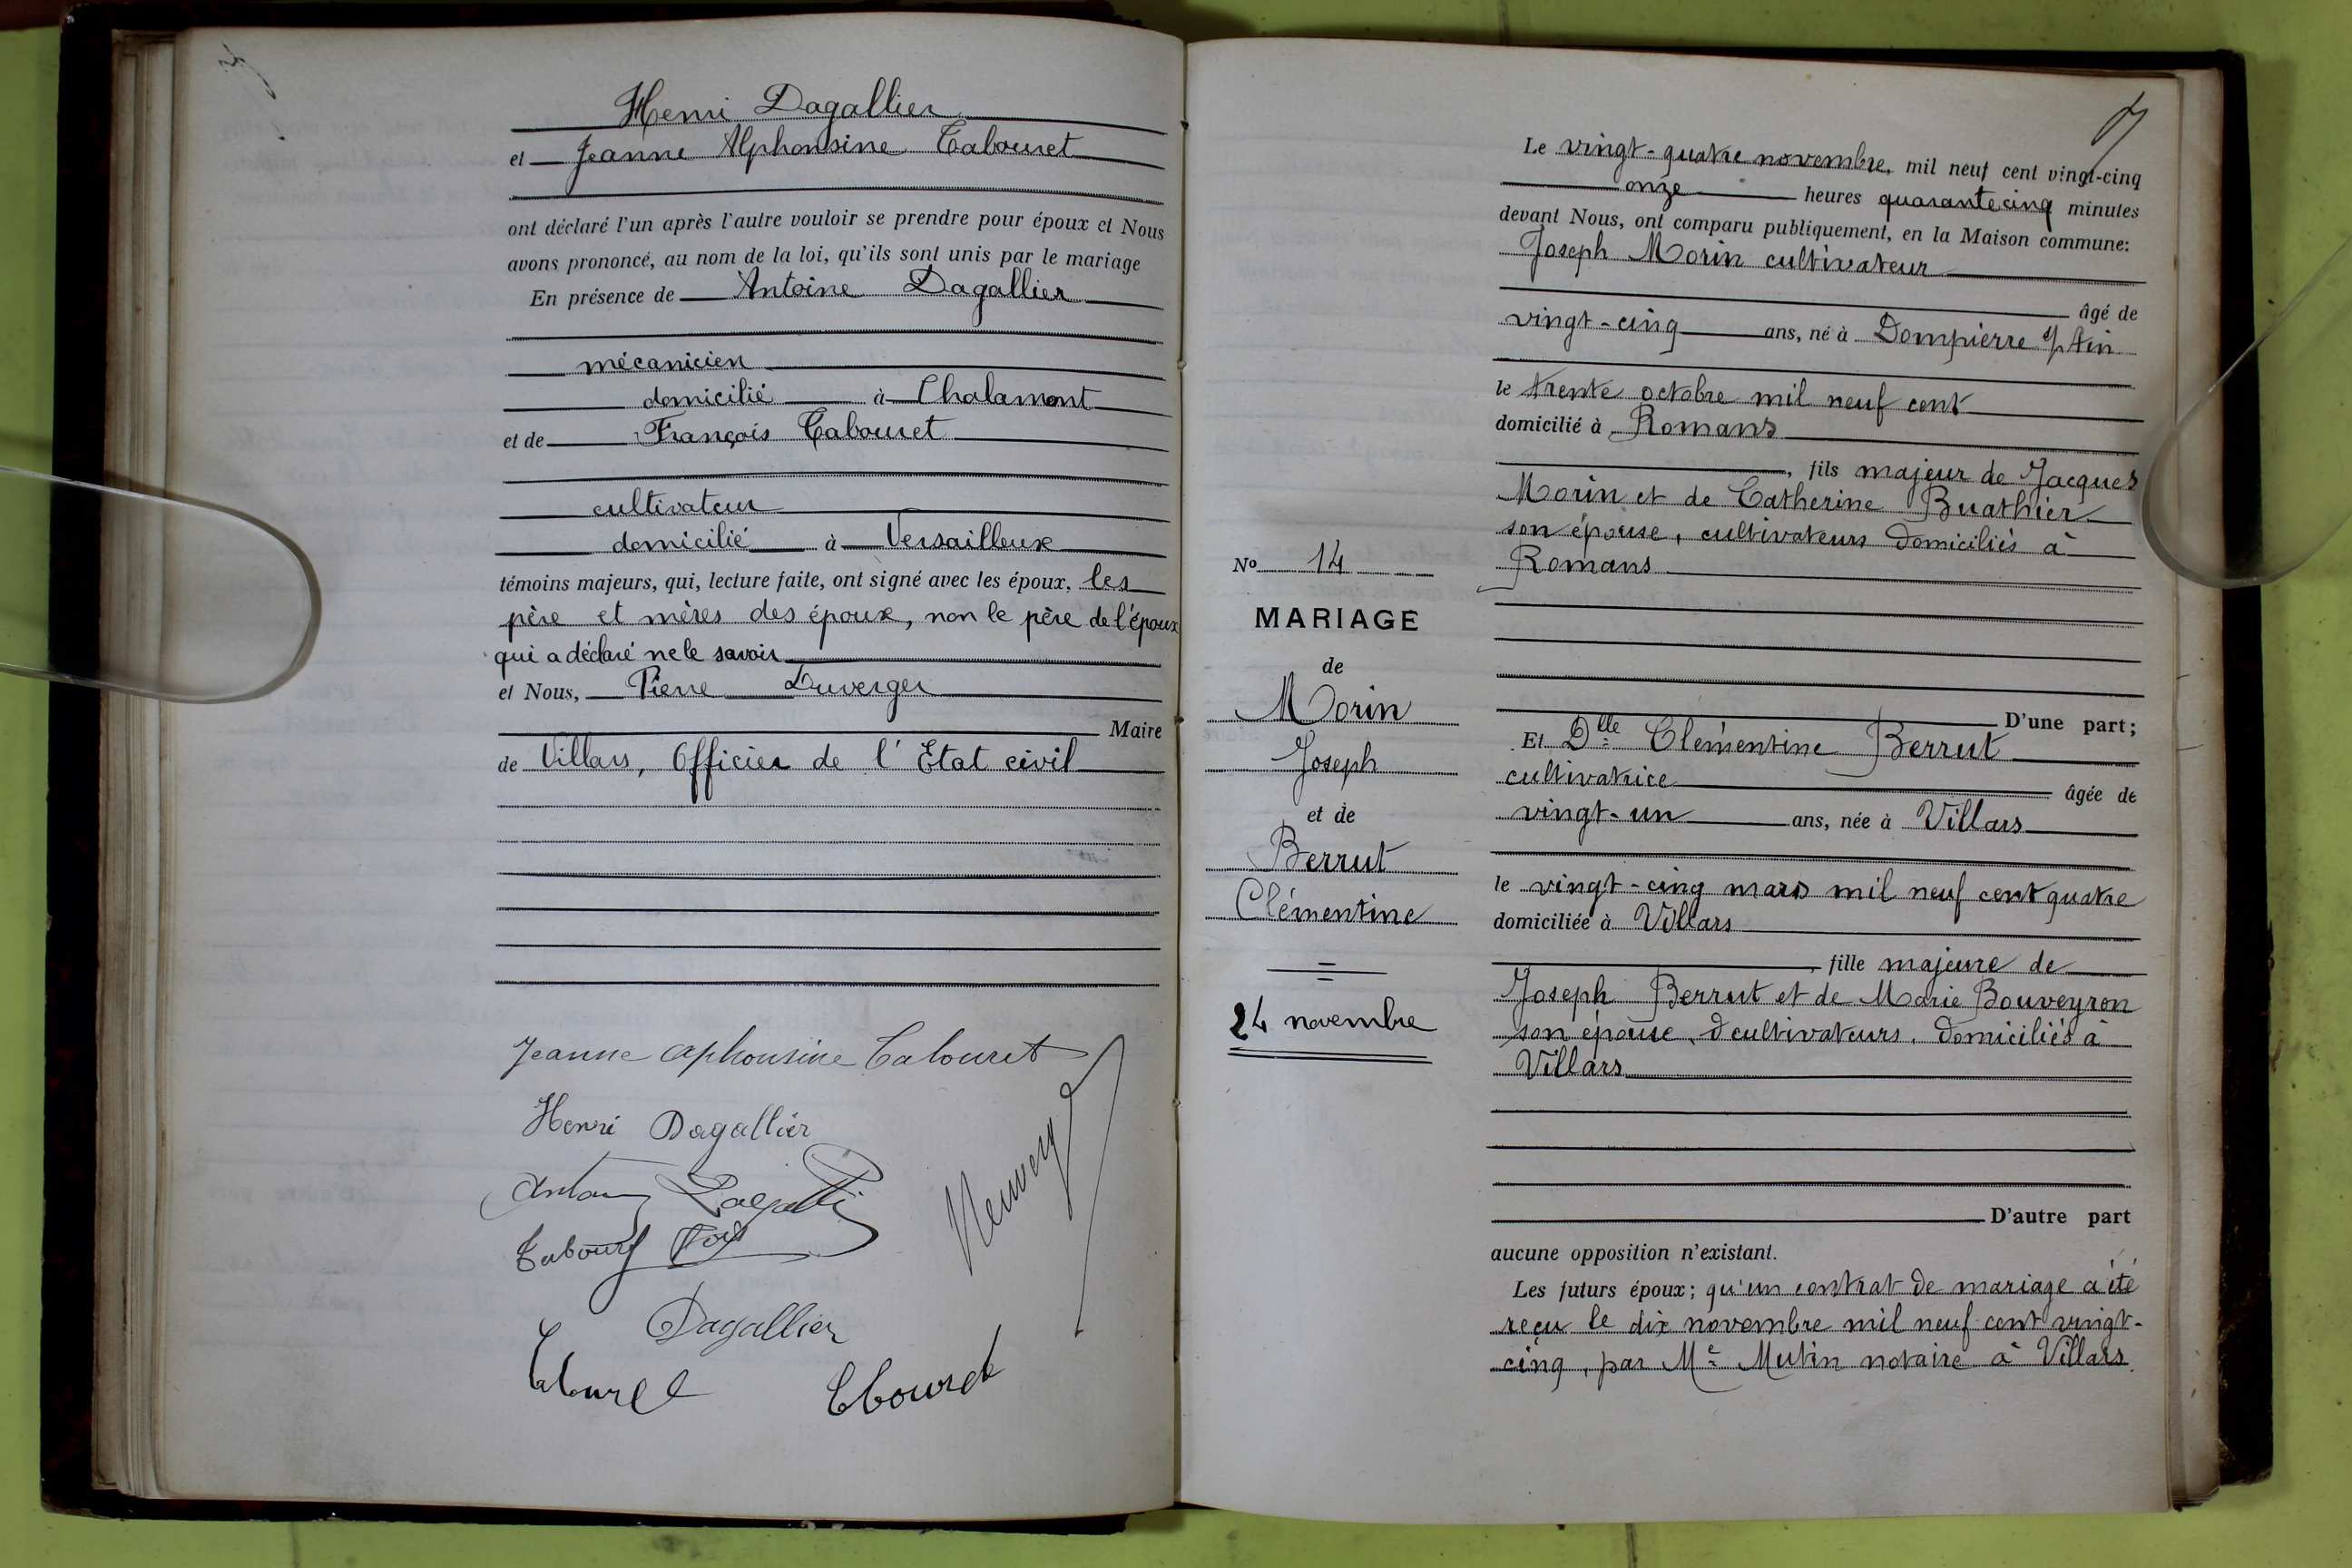 Henri Dagallier
et Jeanne Alphonsine Tabouret
ont déclaré l'un après l'autre vouloir se prendre pour époux et Nous
avons prononcé, au nom de la loi, qu'ils sont unis par le mariage
En présence de Antoine Dagallier
mécanicien
domicilié à Chalamont
et de François Tabouret
cultivateur
domicilié à Versailleux
témoins majeurs, qui, lecture faite, ont signé avec les époux, les
père et mères des époux, non le père de l'époux
qui a déclaré ne le savoir
et Nous, Pierre Duverger
Maire
de Villars, Officier de l'Etat civil
Jeanne Aphonsine Tabouret
Henri Dagallier
Dagallier
Le vingt-quatre novembre, mil neuf cent vingt-cinq
onze heures quarante cinq minutes
devant Nous, ont comparu publiquement, en la Maison commune:
Joseph Morin cultivateur
âgé de
vingt-cinq ans, né à Dompierre s/ Ain
le trente octobre mil neuf cent
domicilié à Romans
, fils majeur de Jacques
Morin et de Catherine Buathier
son épouse, cultivateurs domiciliés à
Romans
D'une part;
No 14
MARIAGE
de
Morin
Joseph
et de
Berrut
Clémentine
24 novembre
Et Dlle Clémentine Berrut
cultivatrice âgée de
vingt-un ans, née à Villars
le vingt-cinq mars mil neuf cent quatre
domiciliée à Villars
, fille majeure de
Joseph Berrut et de Marie Bouveyron
son épouse, cultivateurs, domiciliés à
Villars
D'autre part
aucune opposition n'existant.
Les futurs époux; qu'un contrat de mariage a été
reçu le dix novembre mil neuf cent vingt-
cinq, par Me Mutin notaire à Villars.